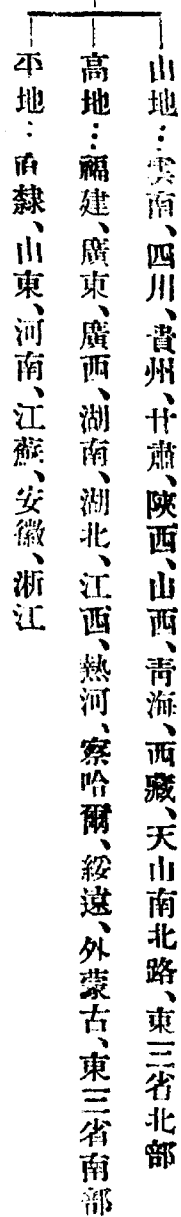 山地…雲南、四川、貴州、甘肅、陝西、山西、青海、西藏、天山南北路、東三省北部
高地…福建、廣東、廣西、湖南、湖北、江西、熱河、察哈爾、綏遠、外蒙古、東三省南部
平地…直隸、山東、河南、江蘇、安徽、浙江